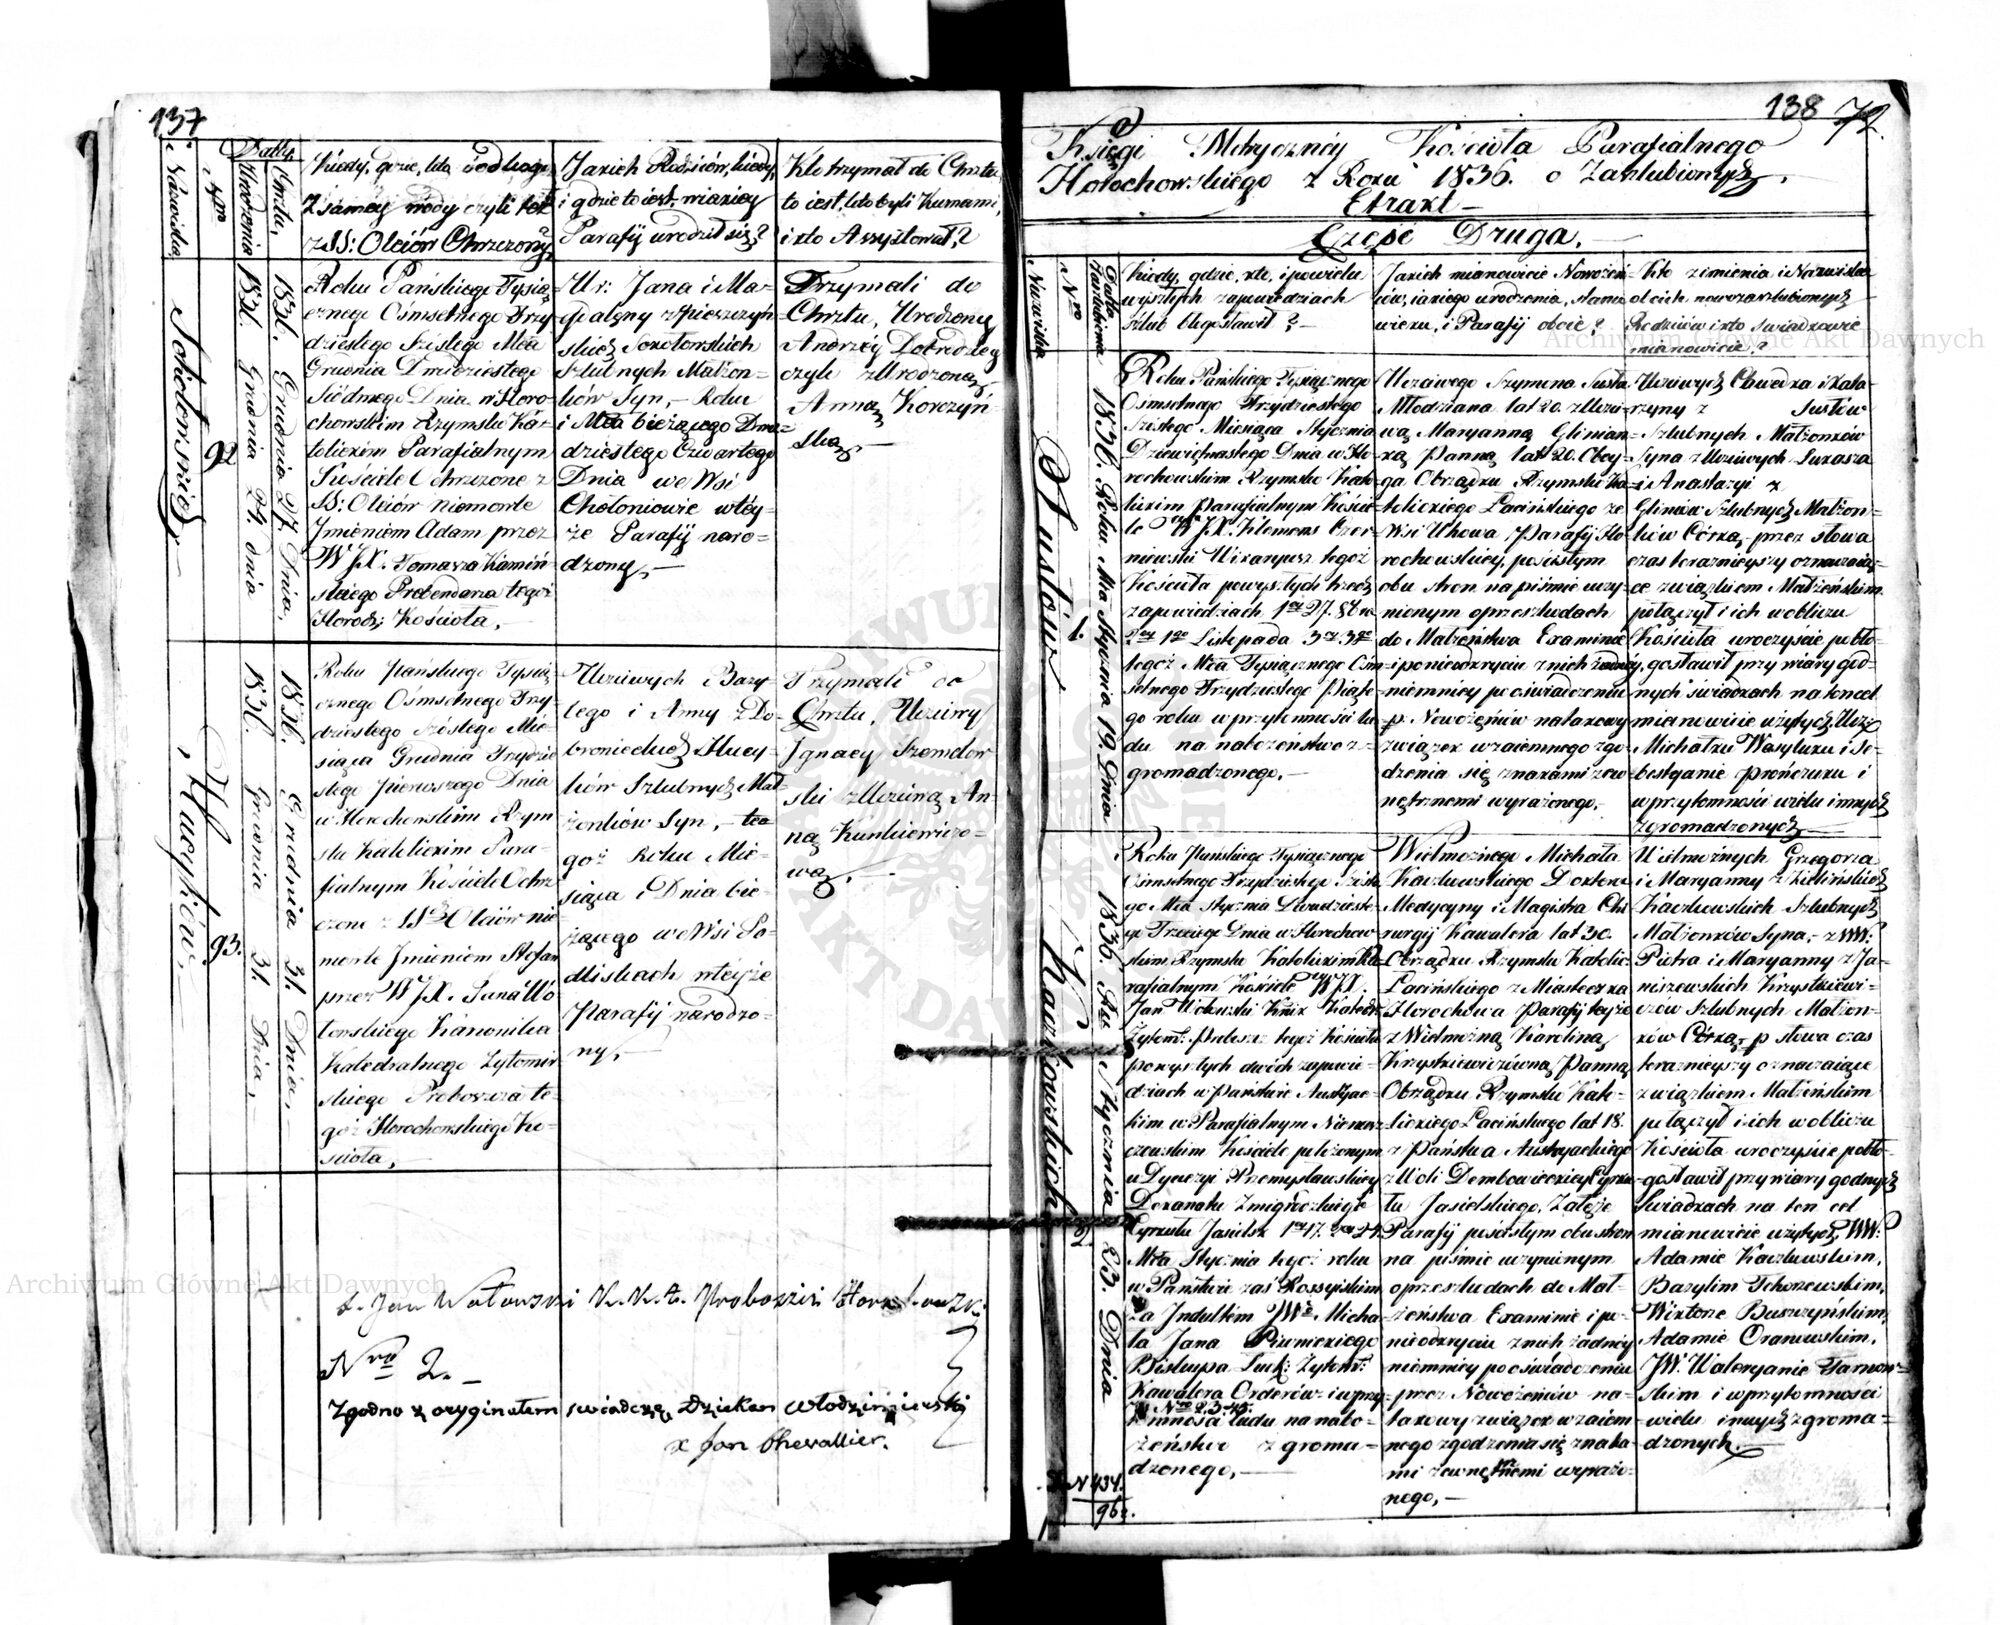 137
Nazwiska
Nro
Datty
Urodzenia
Chrztu
Kiedy, gdzie, kto i od kogo
z samey wody czyli też
z SS: Oleiów Chrzczony?
Jakich Rodziców, kiedy,
i gdzie to iest, w iakiey
Parafij urodził się?
Kto trzymał do Chrztu
to iest, kto byli Kumami,
i kto Assystował?
92
1836. Grudnia 24. dnia
1836. Grudnia 27. Dnia
Roku Pańskiego Tysią-
cznego Ośmsetnego Trzy
dziestego Szóstego Mca
Grudnia Dwudziestego
Siódmego Dnia w Horo-
chowskim Rzymsko Ka-
tolickim Parafialnym
Kościele Ochrzczone z
SS: Oleiów niemowle
Jmieniem Adam przez
W JX. Tomasza Kamiń
skiego Probendarza tegoż
Horod: Kościoła,
Ur: Jana i Ma-
gdaleny
Sokołowskich
Szlubnych Małżon-
ków Syn, Roku
i Mca bieżącego Dwu-
dziestego Czwartego
Dnia we Wsi
Chołoniowie w téy-
że Parafij naro-
dzony,
Trzymali do
Chrztu, Urodzony
Andrzey Dobrodziey
czyli z Urodzoną
Anną Korczyń-
ską,
Hucyków
93.
1836. Grudnia 31. Dnia,
1836. Grudnia 31. Dnia,
Roku Pańskiego Tysią
cznego Ośmsetnego Trzy
dziestego Szóstego Mie-
siąca Grudnia Trzydzie
stego pierwszego Dnia
w Horochowskim Rzym
sko Katolickim Para-
fialnym Kościele Ochrz-
czone z SS. Oleiów nie
mowle Jmieniem Stefan
przez W JX. Jana Wo-
łoskiego Kanonika
Katedralnego Żytomir
skiego Proboszcza te-
goż Horochowskiego Ko-
ścioła,
Uczciwych Bazy-
lego i Anny z Do-
Hucy-
ków Szlubnych Mał-
żonków Syn, te-
goż Roku Mie-
siąca i Dnia bie-
żącego we Wsi Po-
dliskach w téy że
Parafij narodzo-
ny,
Trzymali do
Chrztu, Uczciwy
Jgnacy Szomdow
ski z Uczciwą An-
ną Kunkiewiczo-
wą,
Nro 2.
Zgodno z oryginałem świadczę Dziekan Włodzimierski
x Jan Chevallier.
138 72
Księgi Metrycznéy Kościoła Parafialnego
Horochowskiego z Roku 1836. o Zaszlubionych,
Etrakt
Część Druga,
Nazwiska
Nro
Datta Zaszlubienia
Kiedy, gdzie, kto, i po wielu
wyszłych zapowiedziach
szlub błogosławił?
Jakich mianowicie Nowożeń-
ców, iakiego urodzenia, stanu
wieku, i Parafij obcie?
Kto z imienia i Nazwiska
obcich nowozaszlubionych
Rodziców i kto świadkowie
mianowicie?
Sustów
1.
1836. Roku Mca Stycznia 19. Dnia
Roku Pańskiego Tysiącznego
Ośmsetnego Trzydziestego
Szóstego Miesiąca Stycznia
Dziewiętnastego Dnia w Ho-
rochowskim Rzymsko Kato-
lickim Parafialnym Koście-
le W JX. Klemens Czer-
niawski Wikaryusz tegoż
Kościoła po wyszłych trzech
zapowiedziach
tegoż Mca Tysiącznego Ośm
setnego Trzydziestego Piąte-
go roku w przytomności lu-
du na nabożeństwo z-
gromadzonego,
Uczciwego Szymona Susta
Młodziana lat 20. z Uczci-
wą Maryanną Glinian-
ką Panną lat 20. Oboy-
ga Obrządku Rzymsko Ka-
tolickiego Łacińskiego ze
Wsi Uhowa Parafij Ho-
rochowskiéy, po ścisłym
obu stron na piśmie uczy-
nionym o przeszkodach
do Małżeństwa Examinie
i po nieodkryciu z nich żadnéy
niemniéy po oświadczeniu
p. Nowożeńców na takowy
związek wzaiemnego zgo-
dzenia się znakami zew-
nętrznemi wyrażonego,
Uczciwych Chwedka i Kata-
rzyny z Sustów
Szlubnych Małżonków
Syna z Uczciwych Łukasza
i Anastazyi z
Glinów Szlubnych Małżon-
ków Córką, przez słowa
czas teraznieyszy oznaczaią-
ce związkiem Małżeńskim
połączył i ich w obliczu
Kościoła uroczyście pobło-
gosławił przy wiary god-
nych świadkach na ten cel
mianowicie użytych,
Michałku Wasyluku i Se-
bestyanie Prończuku i
w przytomności wielu innych
zgromadzonych
Kaczkowskich
2.
1836. Ru Stycznia 23. Dnia
Roku Pańskiego Tysiącznego
Ośmsetnego Trzydziestego Szóste
go Mca Stycznia Dwudzieste-
go Trzeciego Dnia w Horochow-
skim Rzymsko Katolickim Pa-
rafialnym Kościele W JX.
Jan Wołoski Kanik Katedr:
Żytom: Probosz: tegoż Kościoła
po wyszłych dwóch zapowie-
dziach w Państwie Austryac-
kim w Parafialnym
Kościele położonym
w Dyecezyi Przemysławskiey
Dekanatu Żmigrodzkiego
Cyrkułu Jasielsk:
Mca Stycznia tegoż roku
w Państwie zaś Rossyiskim
za Jndultem JWo Micha-
ła Jana Piwnickiego
Biskupa Łuck: Żytom:
Kawalera Orderów i w przy
tomności ludu na nabo-
żeństwo zgroma-
dzonego,
Wielmożnego Michała
Kaczkowskiego Doktora
Medycyny i Magistra Chi-
rurgij Kawalera lat 30.
Obrządku Rzymsko Katolic-
Łacińskiego z Miasteczka
Horochowa Parafij teyże
z Wielmożną Karoliną
Krystkiewiczówną Panną
Obrządku Rzymsko Kato-
lickiego Łacińskiego lat 18.
z Państwa Austryackiego
z Woli Dembowieckiey Cyrku-
łu Jasielskiego, Załęże
Parafij po ścisłym obu stron
na piśmie uczynionym
o przeszkodach do Mał-
żeństwa Examinie i po-
nieodkryciu z nich żadnéy
niemniéy po oświadczeniu
przez Nowożeńców na-
takowy związek wzaiem-
nego zgodzenia się znaka-
mi zewnętrznemi wyrażo-
nego,
Wielmożnych Grzegorza
i Maryanny z Zielińskich
Kaczkowskich Szlubnych
Małżonków Syna, z WW:
Piotra i Maryanny z Ja-
niszewskich Krystkiewi-
czów Szlubnych Małżon-
ków Córką, p słowa czas
teraznieyszy oznaczaiące
związkiem Małżeńskim
połączył i ich w obliczu
Kościoła uroczyście pobło-
gosławił przy wiary godnych
Świadkach na ten cel
mianowicie użytych, WW:
Adamie Kaczkowskim,
Bazylim Tchorzewskim,
Wiktorze Buszczyńskim,
Adamie Oranowskim,
JW. Waleryanie Tarnow-
skim i w przytomności
wielu innych zgroma-
dzonych.
Archiwum Główne Akt Dawnych
Archiwum Główne Akt Dawnych